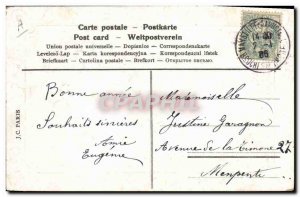 Carte postale - Postkarte
Post card - Weltpostverein
Union postale universelle - Dopisnice - Correspondenzkarte
Levelező-Lap - Korrespondenzkarte - Korespondencní lístek
Briefkaart - Cartolina postale - Brefkort - Открытое письмо.
J.C. PARIS
Bonne année
Souhaits sincères
Amie
Eugénie
Mademoiselle
Justine Garagnon
Avenue de la Timone 27
Menpenti